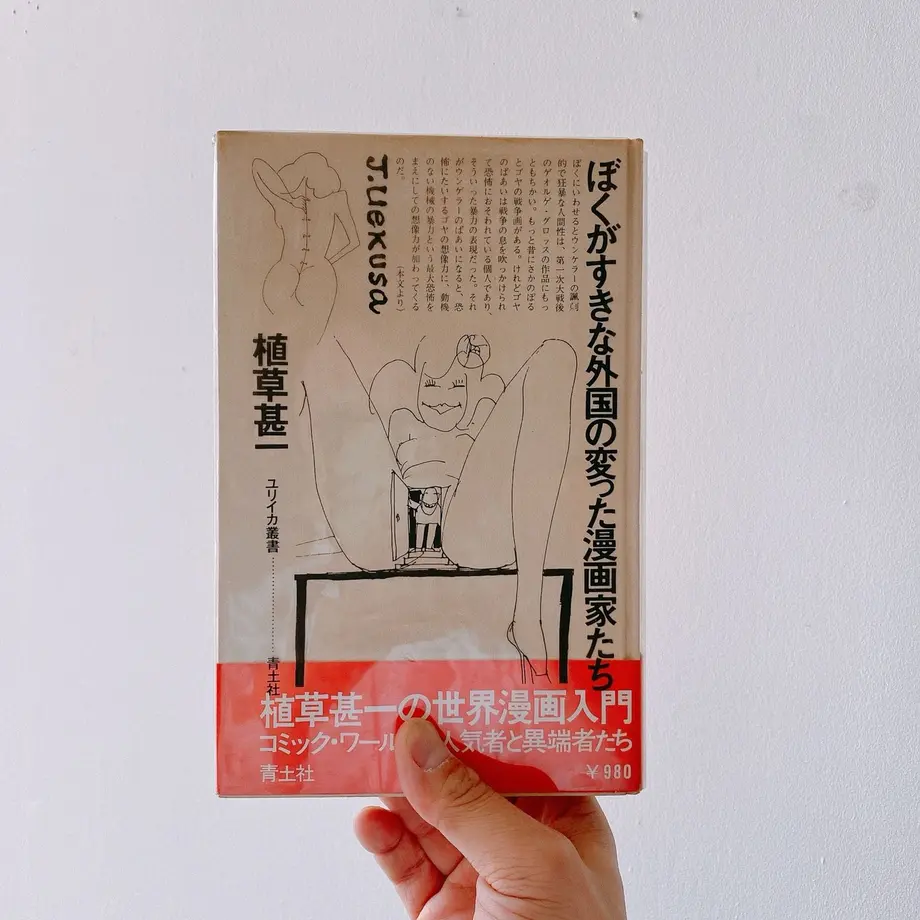 ぼくがすきな外国の変った漫画家たち
ぼくにいわせるとウンゲラーの諷刺
的で狂暴な人間性は、第一次大戦後
のゲオルゲ・グロッスの作品にもっ
ともちかい。もっと昔にさかのぼる
とゴヤの戦争画がある。けれどゴヤ
のばあいは戦争の息を吹っかけられ
て恐怖におそわれている個人であり、
そういった暴力の表現だった。それ
がウンゲラーのばあいになると、恐
怖にたいするゴヤの想像力に、動機
のない機械の暴力という最大恐怖を
まえにしての想像力が加わってくる
のだ。
(本文より)
J.Uexusa
植草甚一
ユリイカ叢書
青土社
植草甚一の世界漫画入門
コミック・ワール
人気者と異端者たち
青土社
¥980